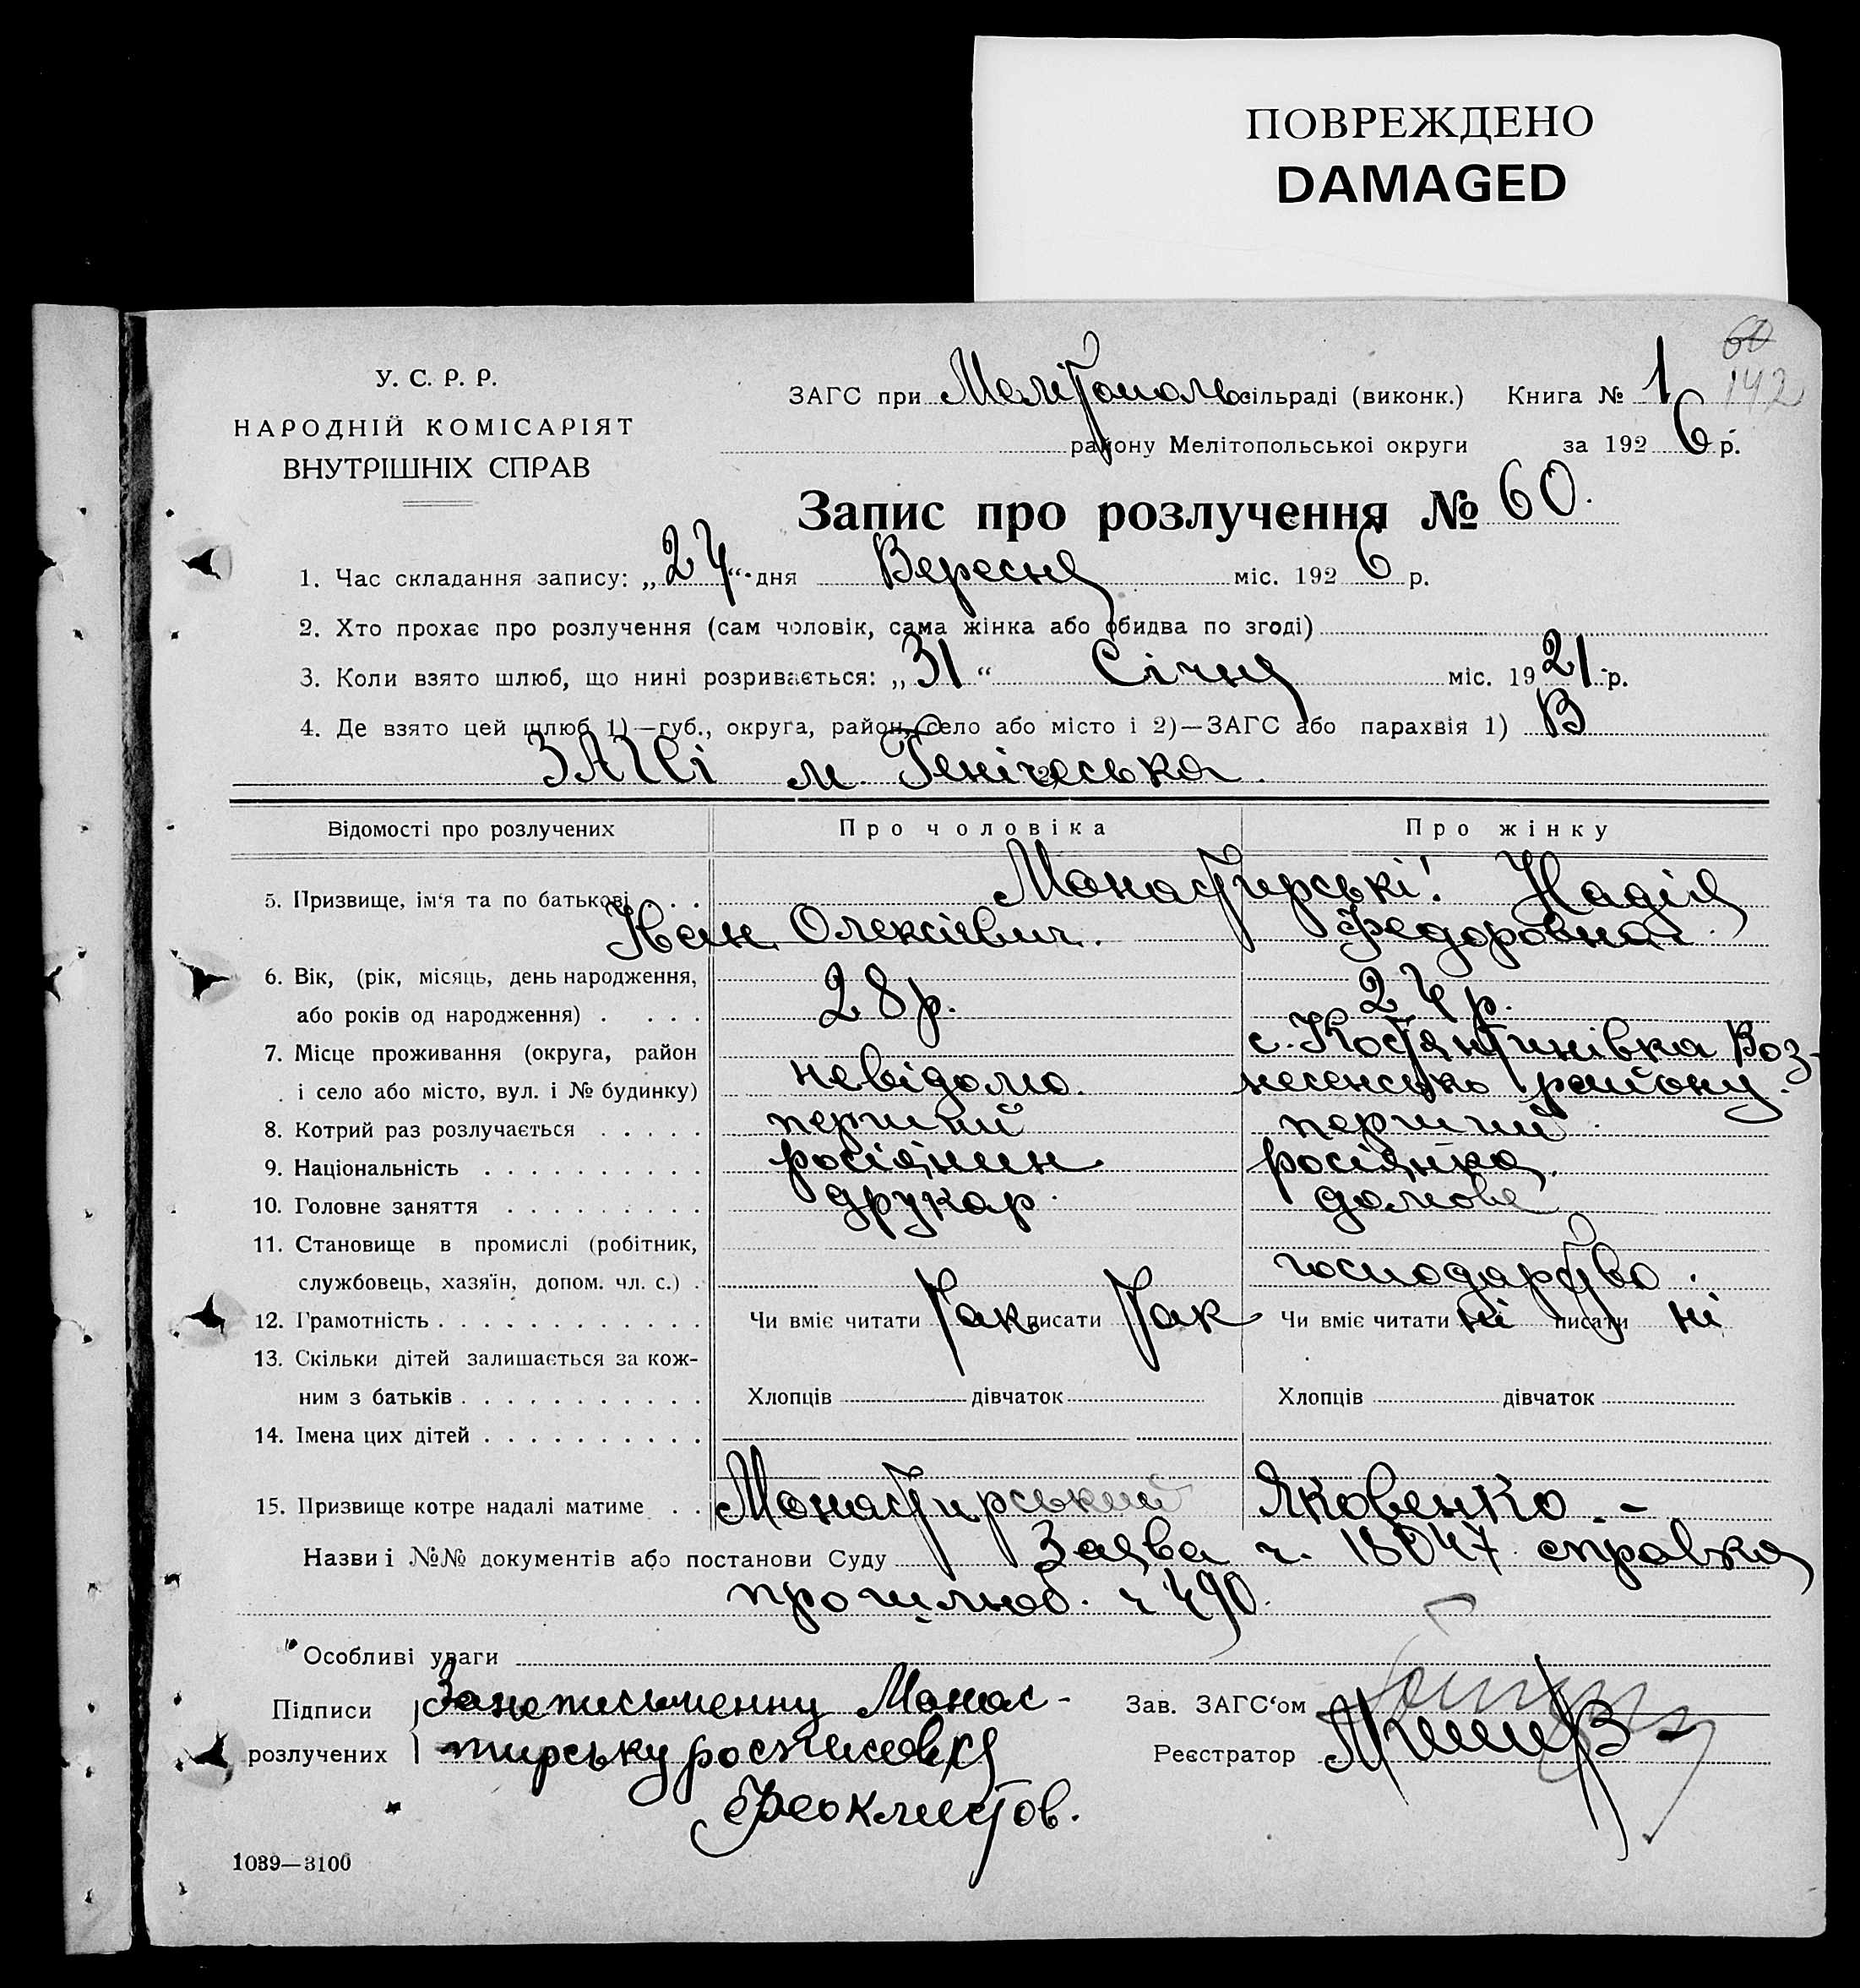 ПОВРЕЖДЕНО
DAMAGED
60
142
У. С. Р. Р.
НАРОДНІЙ КОМІСАРІЯТ
ВНУТРІШНІХ СПРАВ
ЗАГС при Мелітополь сільраді (виконк.) Книга № 1
району Мелітопольської округи за 1926 р.
Запис про розлучення № 60.
1. Час складання запису: „24“ дня Вересня міс. 1926 р.
2. Хто прохає про розлучення (сам чоловік, сама жінка або обидва по згоді)
3. Коли взято шлюб, що нині розривається: „31“ Січня міс. 1921 р.
4. Де взято цей шлюб 1)—губ., округа, район, село або місто і 2)—ЗАГС або парахвія 1) В
ЗАГСі м. Генічеська.
Відомості про розлучених Про чоловіка Про жінку
5. Призвище, ім‘я та по батькові Монастирські! Надія
Іван Олексієвич. Федоровна.
6. Вік, (рік, місяць, день народження,
або років од народження) 28 р. 24 р.
7. Місце проживання (округа, район с. Костянтинівка Воз-
і село або місто, вул. і № будинку) невідомо. несенсько району.
8. Котрий раз розлучається перший перший
9. Національність росіянин росіянка.
10. Головне заняття друкар. домове
11. Становище в промислі (робітник,
службовець, хазяїн, допом. чл. с.) господарство.
12. Грамотність Чи вміє читати Так писати Так Чи вміє читати ні писати ні
13. Скільки дітей залишається за кож-
ним з батьків Хлопців дівчаток Хлопців дівчаток
14. Імена цих дітей
15. Призвище котре надалі матиме Монастирський Яковенко. –
Назви і №№ документів або постанови Суду Заява ч. 18047 справка
про шлюб. ч 490.
Особливі уваги
Підписи За неписьменну Монас-
розлучених тирську росписався
Феоклистов.
Зав. ЗАГС‘ом
Реєстратор
1039—3100